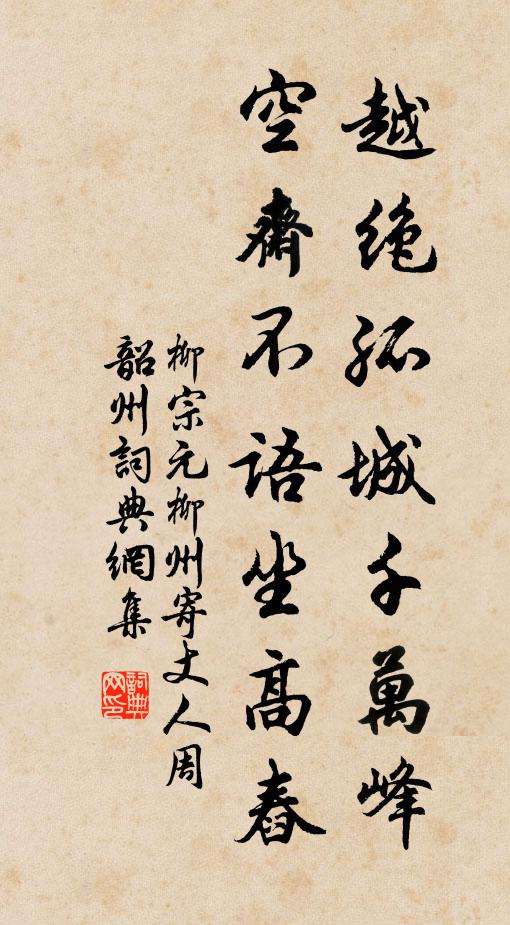 越絶孤城千萬峰
空齋不語坐高舂
柳宗元柳州寄丈人周
韶州詞典網集
詞典
网印